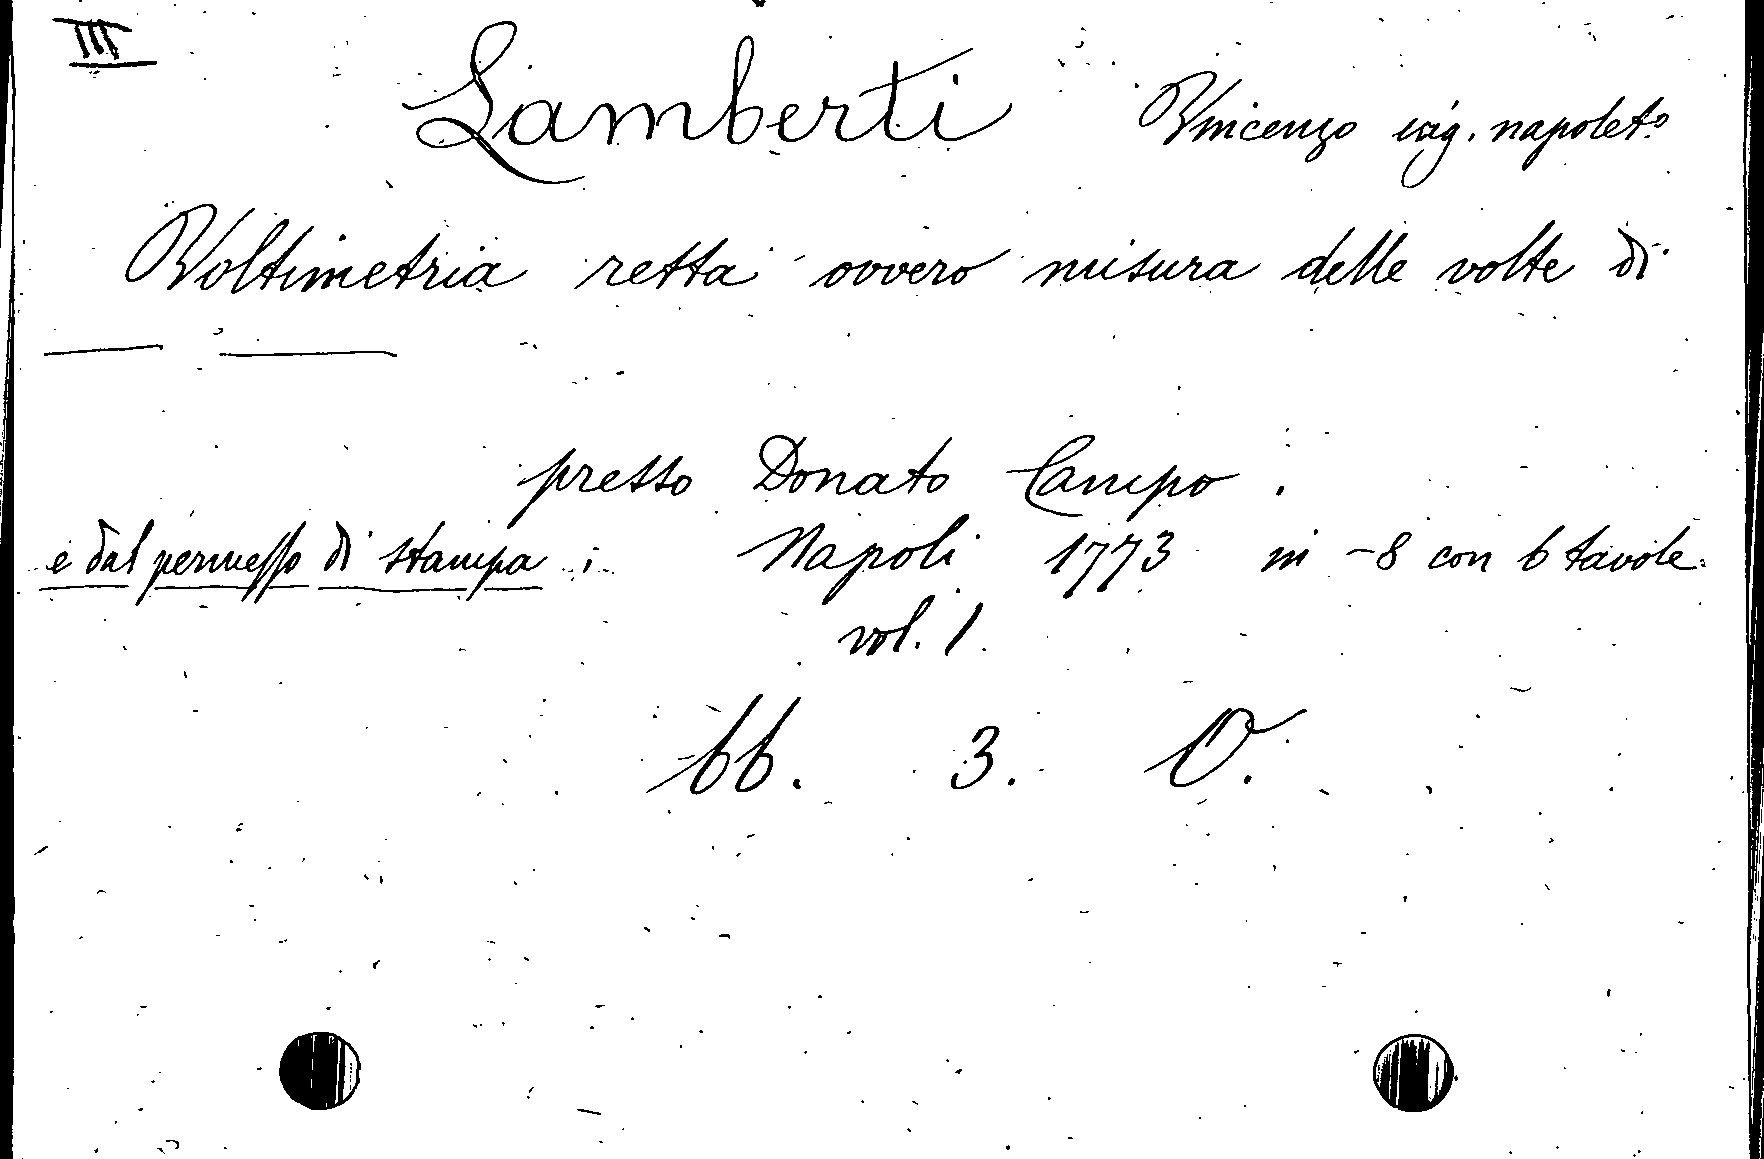 III
Lamberti Vincenzo ing. napolet.º
Voltimetria retta ovvero misura delle volte di
presso Donato Campo.
e dal permesso di stampa; Napoli 1773 in -8 con 6 tavole.
vol. 1.
66. 3. O.